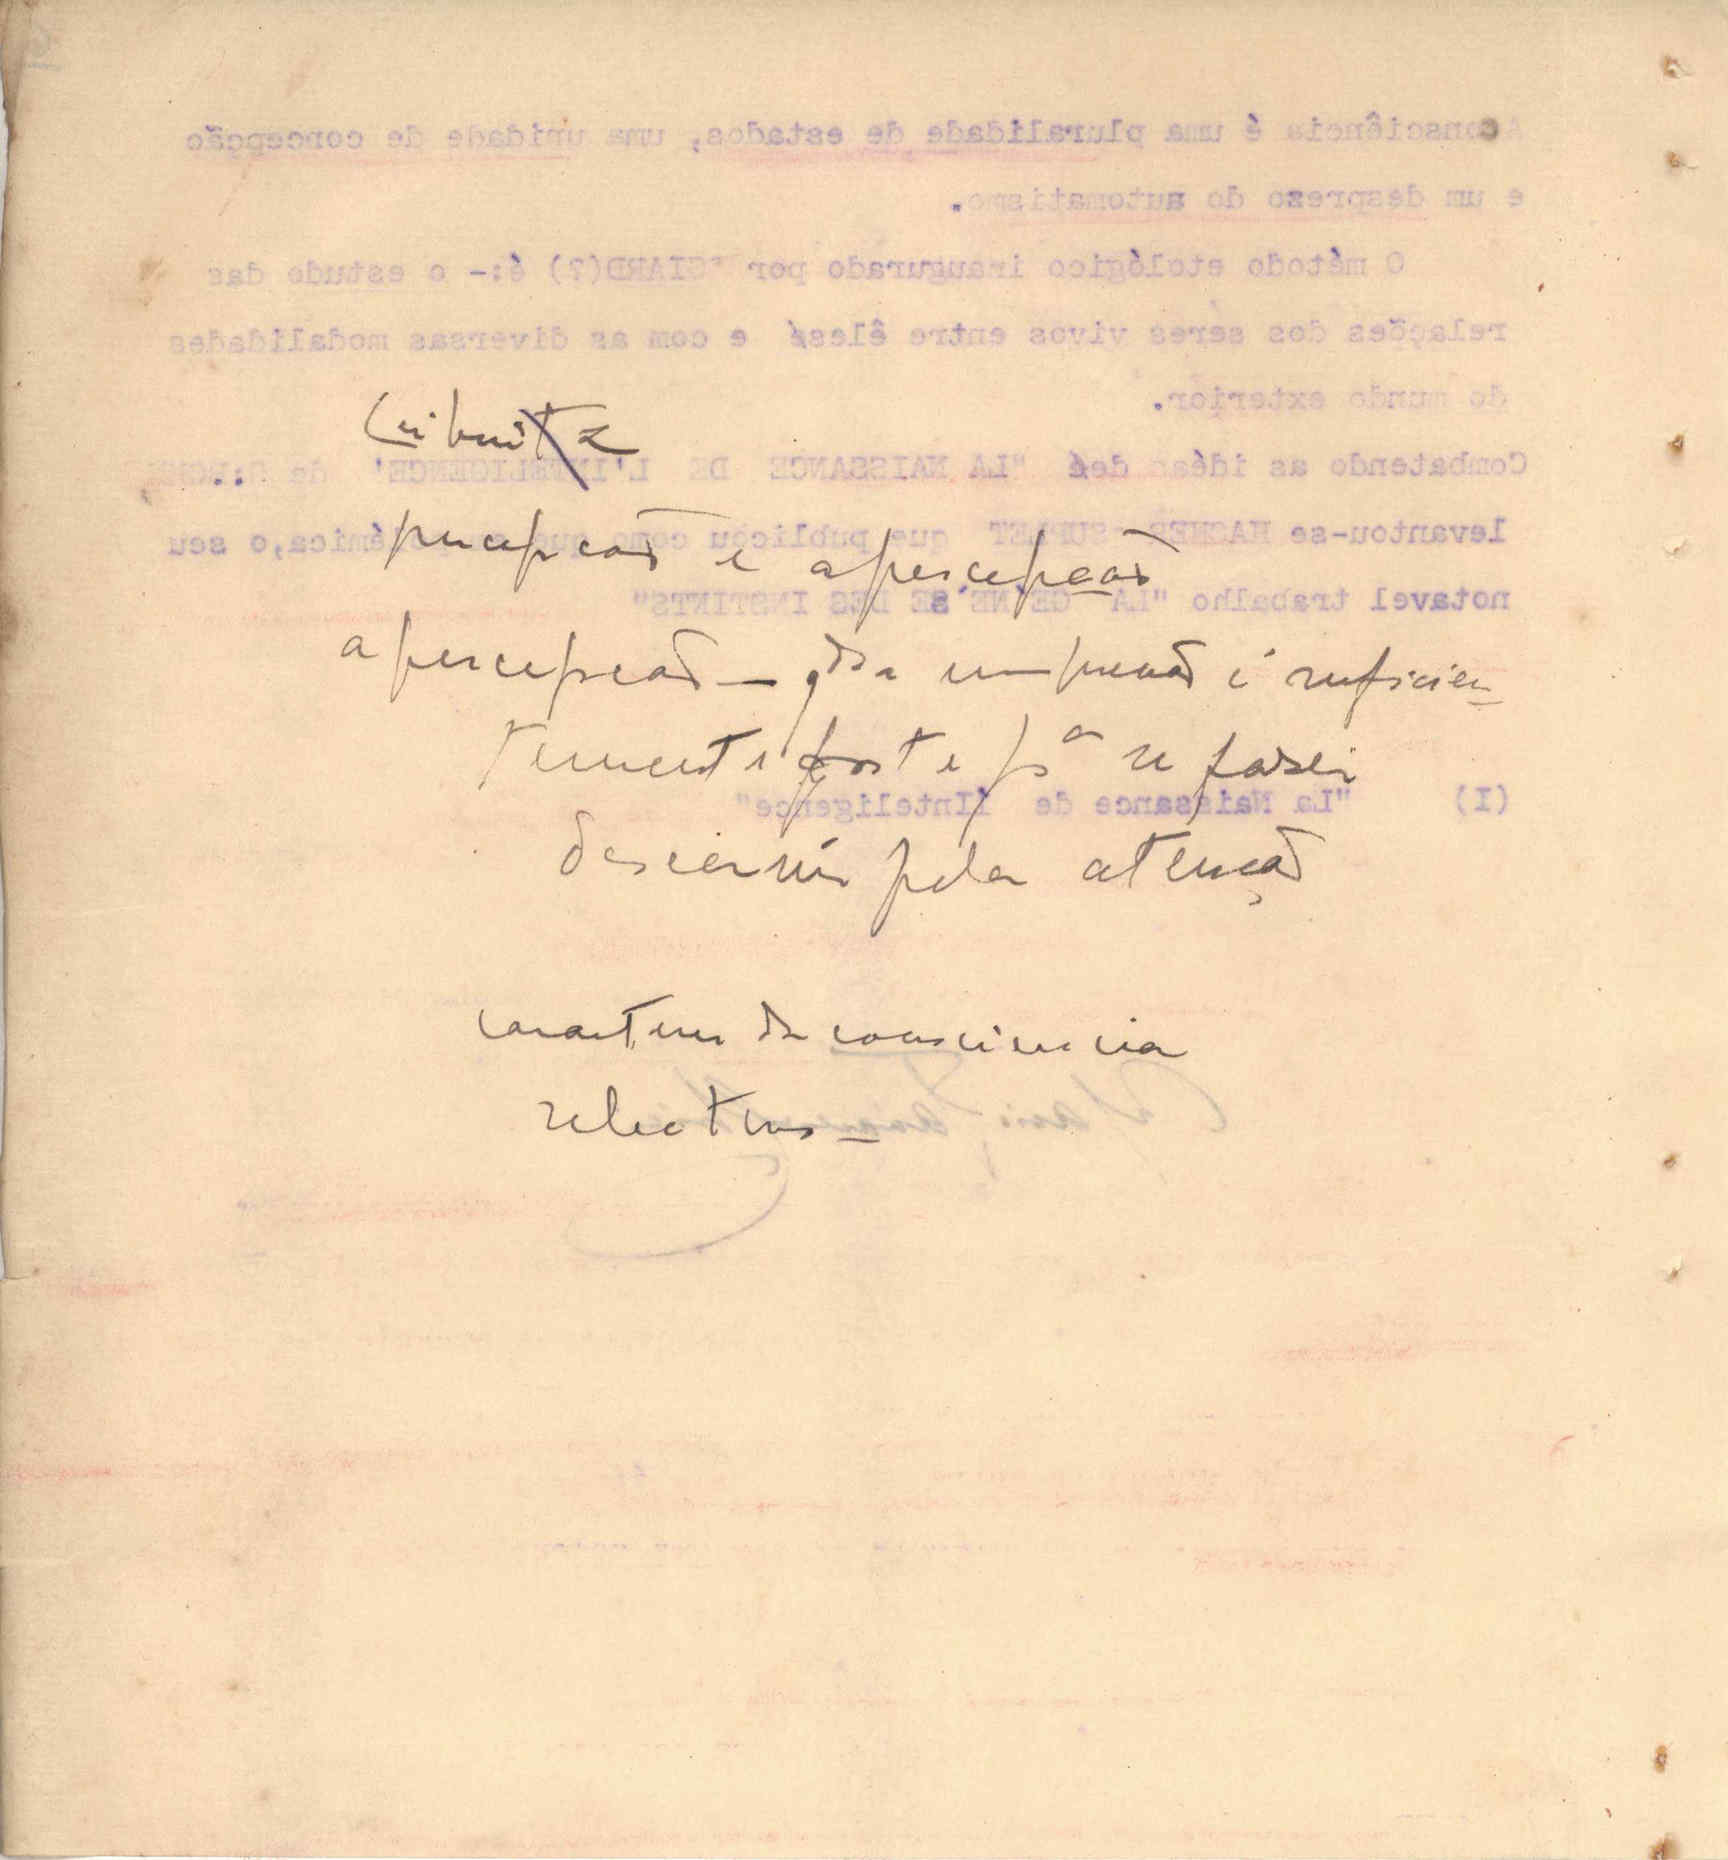 Leibnitz
percepção e apercepção
apercepção — qdo a impressão é suficien-
temente forte pª se fazer
descernir pela atenção
caracteres da consciencia
selectivos —
Aconsciência é uma pluralidade de estados, uma unidade de concepção
e um despreso do automatismo.
O método etológico inaugurado por "GIARD(?) é:- o estudo das
relações dos seres vivos entre êles e com as diversas modalidades
do mundo exterior.
Combatendo as idéas de "LA NAISSANCE DE L'INTELIGENCE" de
levantou-se HACHET SUPLET que publicou como que polémica,o seu
notavel trabalho "LA GÉNÈSE DES INSTINTS"
(I) "La Naissance de lInteligence"